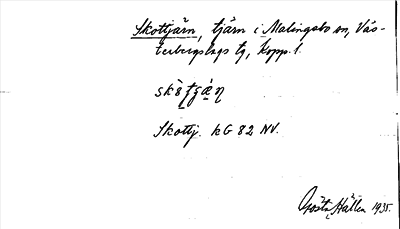 Skottjärn, tjärn i Malingsbo sn, Väs-
terbergslags tg, Kopp. l.
Skottj. kG 82 NV.
Gösta Hällen 1935.